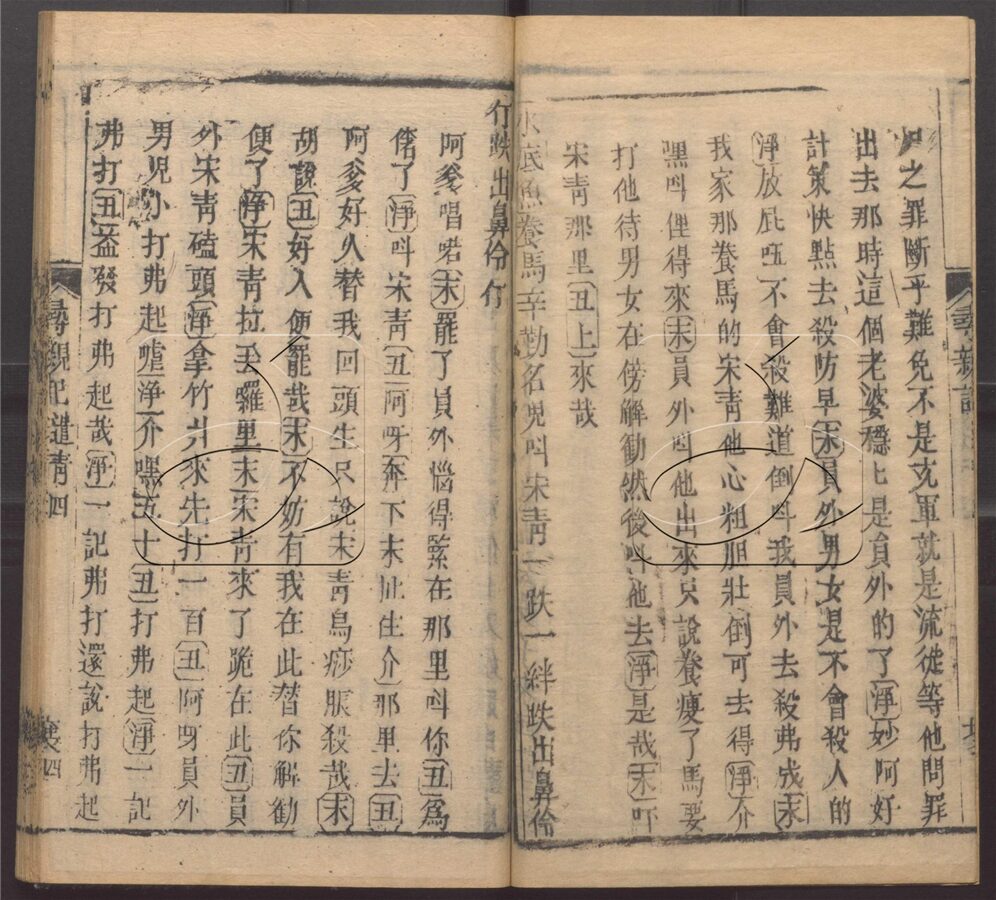 之罪斷乎難免不是充軍就是流徒等他問罪
出去那時這個老婆穩匕是員外的了淨妙阿好
計策快點去殺防早末員外男女是不會殺人的
淨放屁㕶不會殺難道倒呌我員外去殺弗成末
我家那養馬的宋青他心粗胆壯倒可去得淨介
嘿呌俚得來末員外呌他出來只說養瘦了馬要
打他待男女在傍解勸然後呌他去淨是哉末吓
宋青那里丑上來哉
水底魚養馬辛勤名兒呌宋青一跌一絆跌出鼻伶
仃跌出鼻伶仃
阿爹唱喏末罷了員外惱得緊在那里呌你丑爲
偖了淨呌宋青丑阿呀奔下末扯住介那里去丑
阿爹好人替我回頭生只說宋青烏痧脹殺哉末
胡說丑好入便罷哉末不妨有我在此替你解勸
便了淨宋青拉丟囉里末宋青來了跪在此丑員
外宋青磕頭淨拿竹爿來先打一百丑阿呀員外
男兒小打弗起嘘淨介嘿五十丑打弗起淨一記
弗打丑益發打弗起哉淨一記弗打還說打弗起
尋親記遣青四